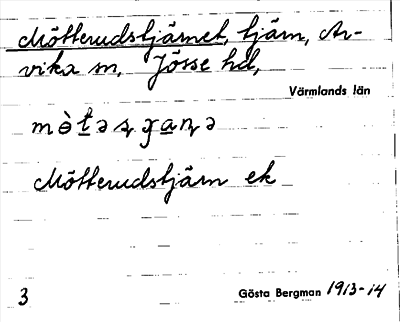 Mötterudstjärnet, tjärn, Ar-
vika sn, Jösse hd,
Värmlands län
Mötterudstjärn ek
3
Gösta Bergman 1913-14